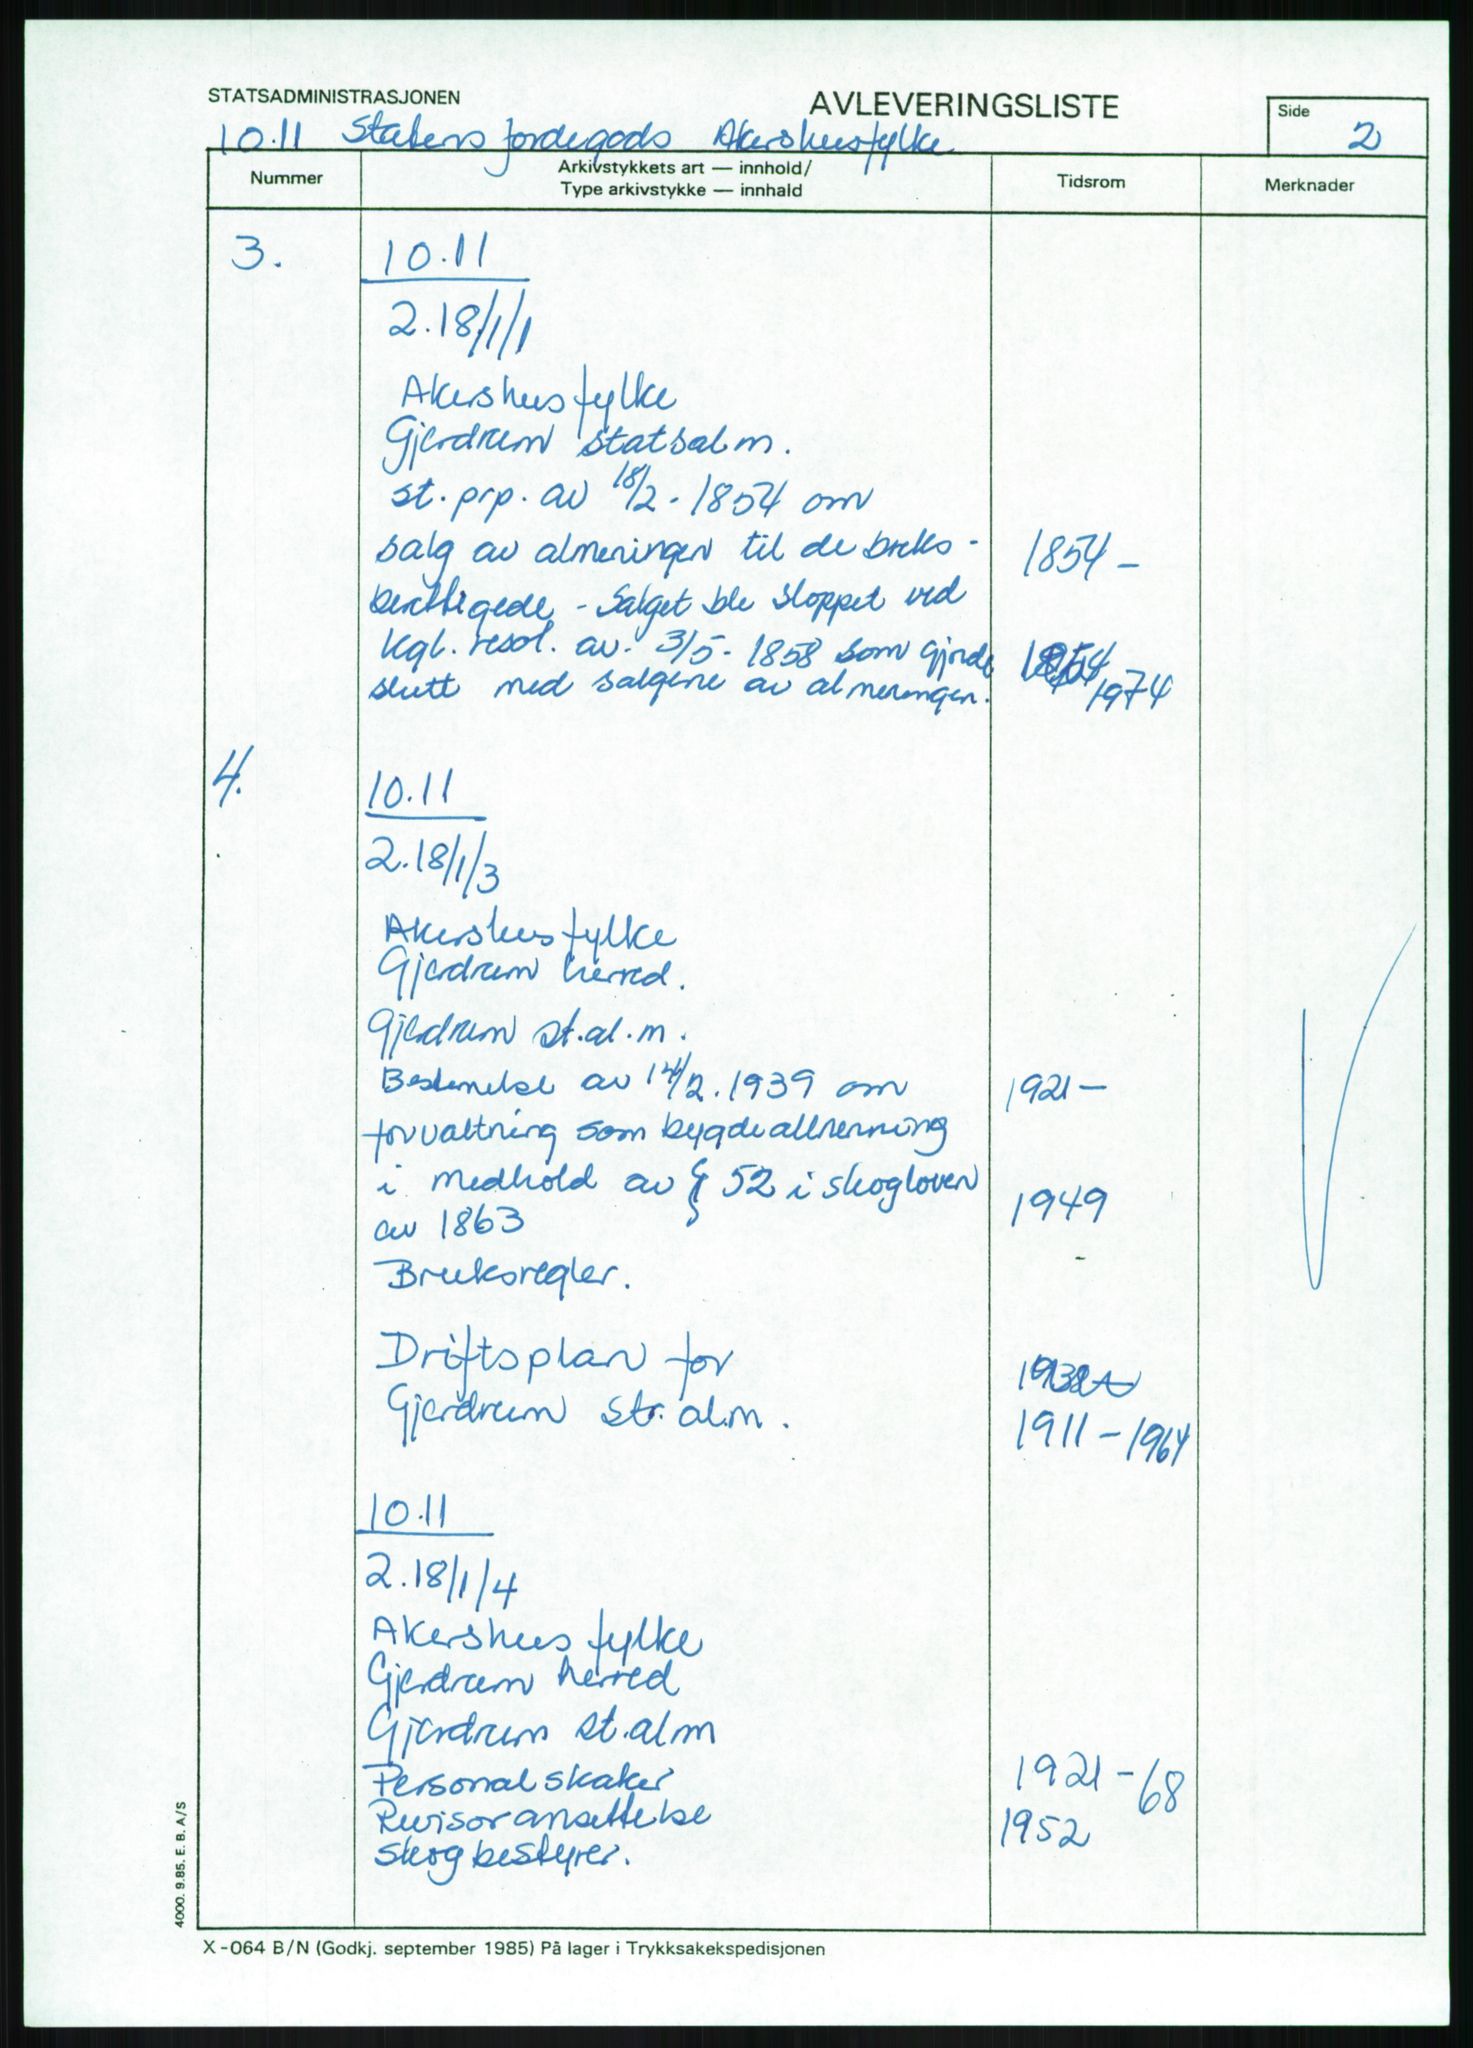 STATSADMINISTRASJONEN
AVLEVERINGSLISTE
Side
2
10.11 Statens jordegods Akershus fylke
Nummer
Arkivstykkets art — innhold/
Type arkivstykke — innhald
Tidsrom
Merknader
3. 10.11
2.18/1/1
Akershus fylke
Gjerdrum statsalm.
st. prp. av 18/2 - 1854 om
salg av almeningen til de bruks- 1854 –
berettigede - Salget ble stoppet ved
kgl. resol. av. 3/5 - 1858 som gjorde
slutt med salgene av almeningen. 1974
4. 10.11
2.18/1/3
Akershus fylke
Gjerdrum herred.
Gjerdrum st.al.m.
Bestemelse av 14/2. 1939 om 1921 –
forvaltning som bygdeallmenning
i medhold av § 52 i skogloven 1949
av 1863
Bruksregler.
Driftsplan for 1938
Gjerdrum str. alm. 1911 – 1964
10.11
2.18/1/4
Akershus fylke
Gjerdrum herred
Gjerdrum st.alm
Personalsaker 1921 - 68
Revisoransettelse 1952
skogbestyrer.
4000. 9.85. E. B. A/S
X-064 B/N (Godkj. september 1985) På lager i Trykksakekspedisjonen